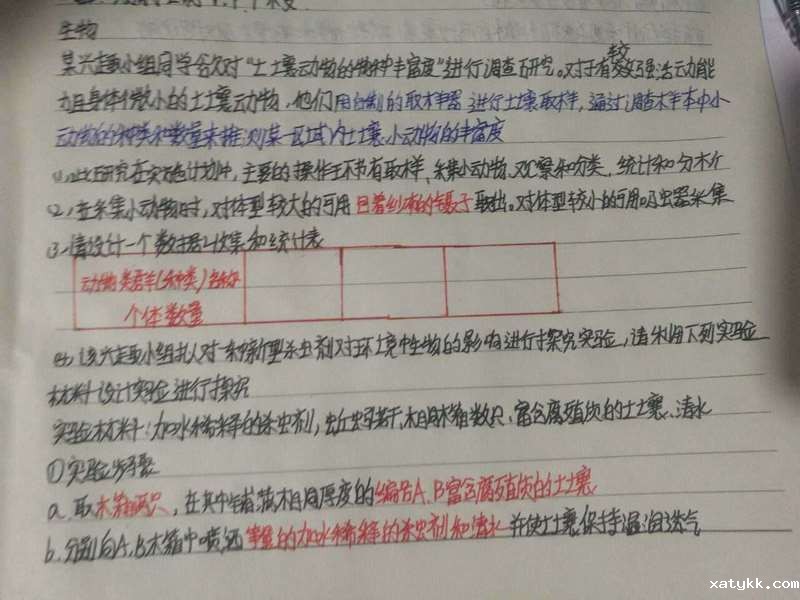 生物
某兴趣小组同学欲对"土壤动物的物种丰富度"进行调查研究。对于有较强活动能
力且身体微小的土壤动物,他们用自制的取样器进行土壤取样,通过调查样本中小
动物的种类和数量来推测某一区域内土壤小动物的丰富度
(1)此研究在实施计划中,主要的操作环节有取样、采集小动物、观察和分类、统计和分析
(2)在采集小动物时,对体型较大的可用包着纱布的镊子取出。对体型较小的可用吸虫器采集
(3)请设计一个数据收集和统计表
动物类群(种类)名称
个体数量
(4)该兴趣小组拟对一新型杀虫剂对环境中生物的影响进行探究实验,请利用下列实验
材料设计实验进行探究
实验材料:加水稀释的杀虫剂,蚯蚓若干,相同木箱数只,富含腐殖质的土壤、清水
①实验步骤
a.取木箱两只,在其中铺满相同厚度的编号A.B富含腐殖质的土壤
b.分别向A.B木箱中喷洒等量的加水稀释的杀虫剂和清水并使土壤保持湿润透气
xatykk.com